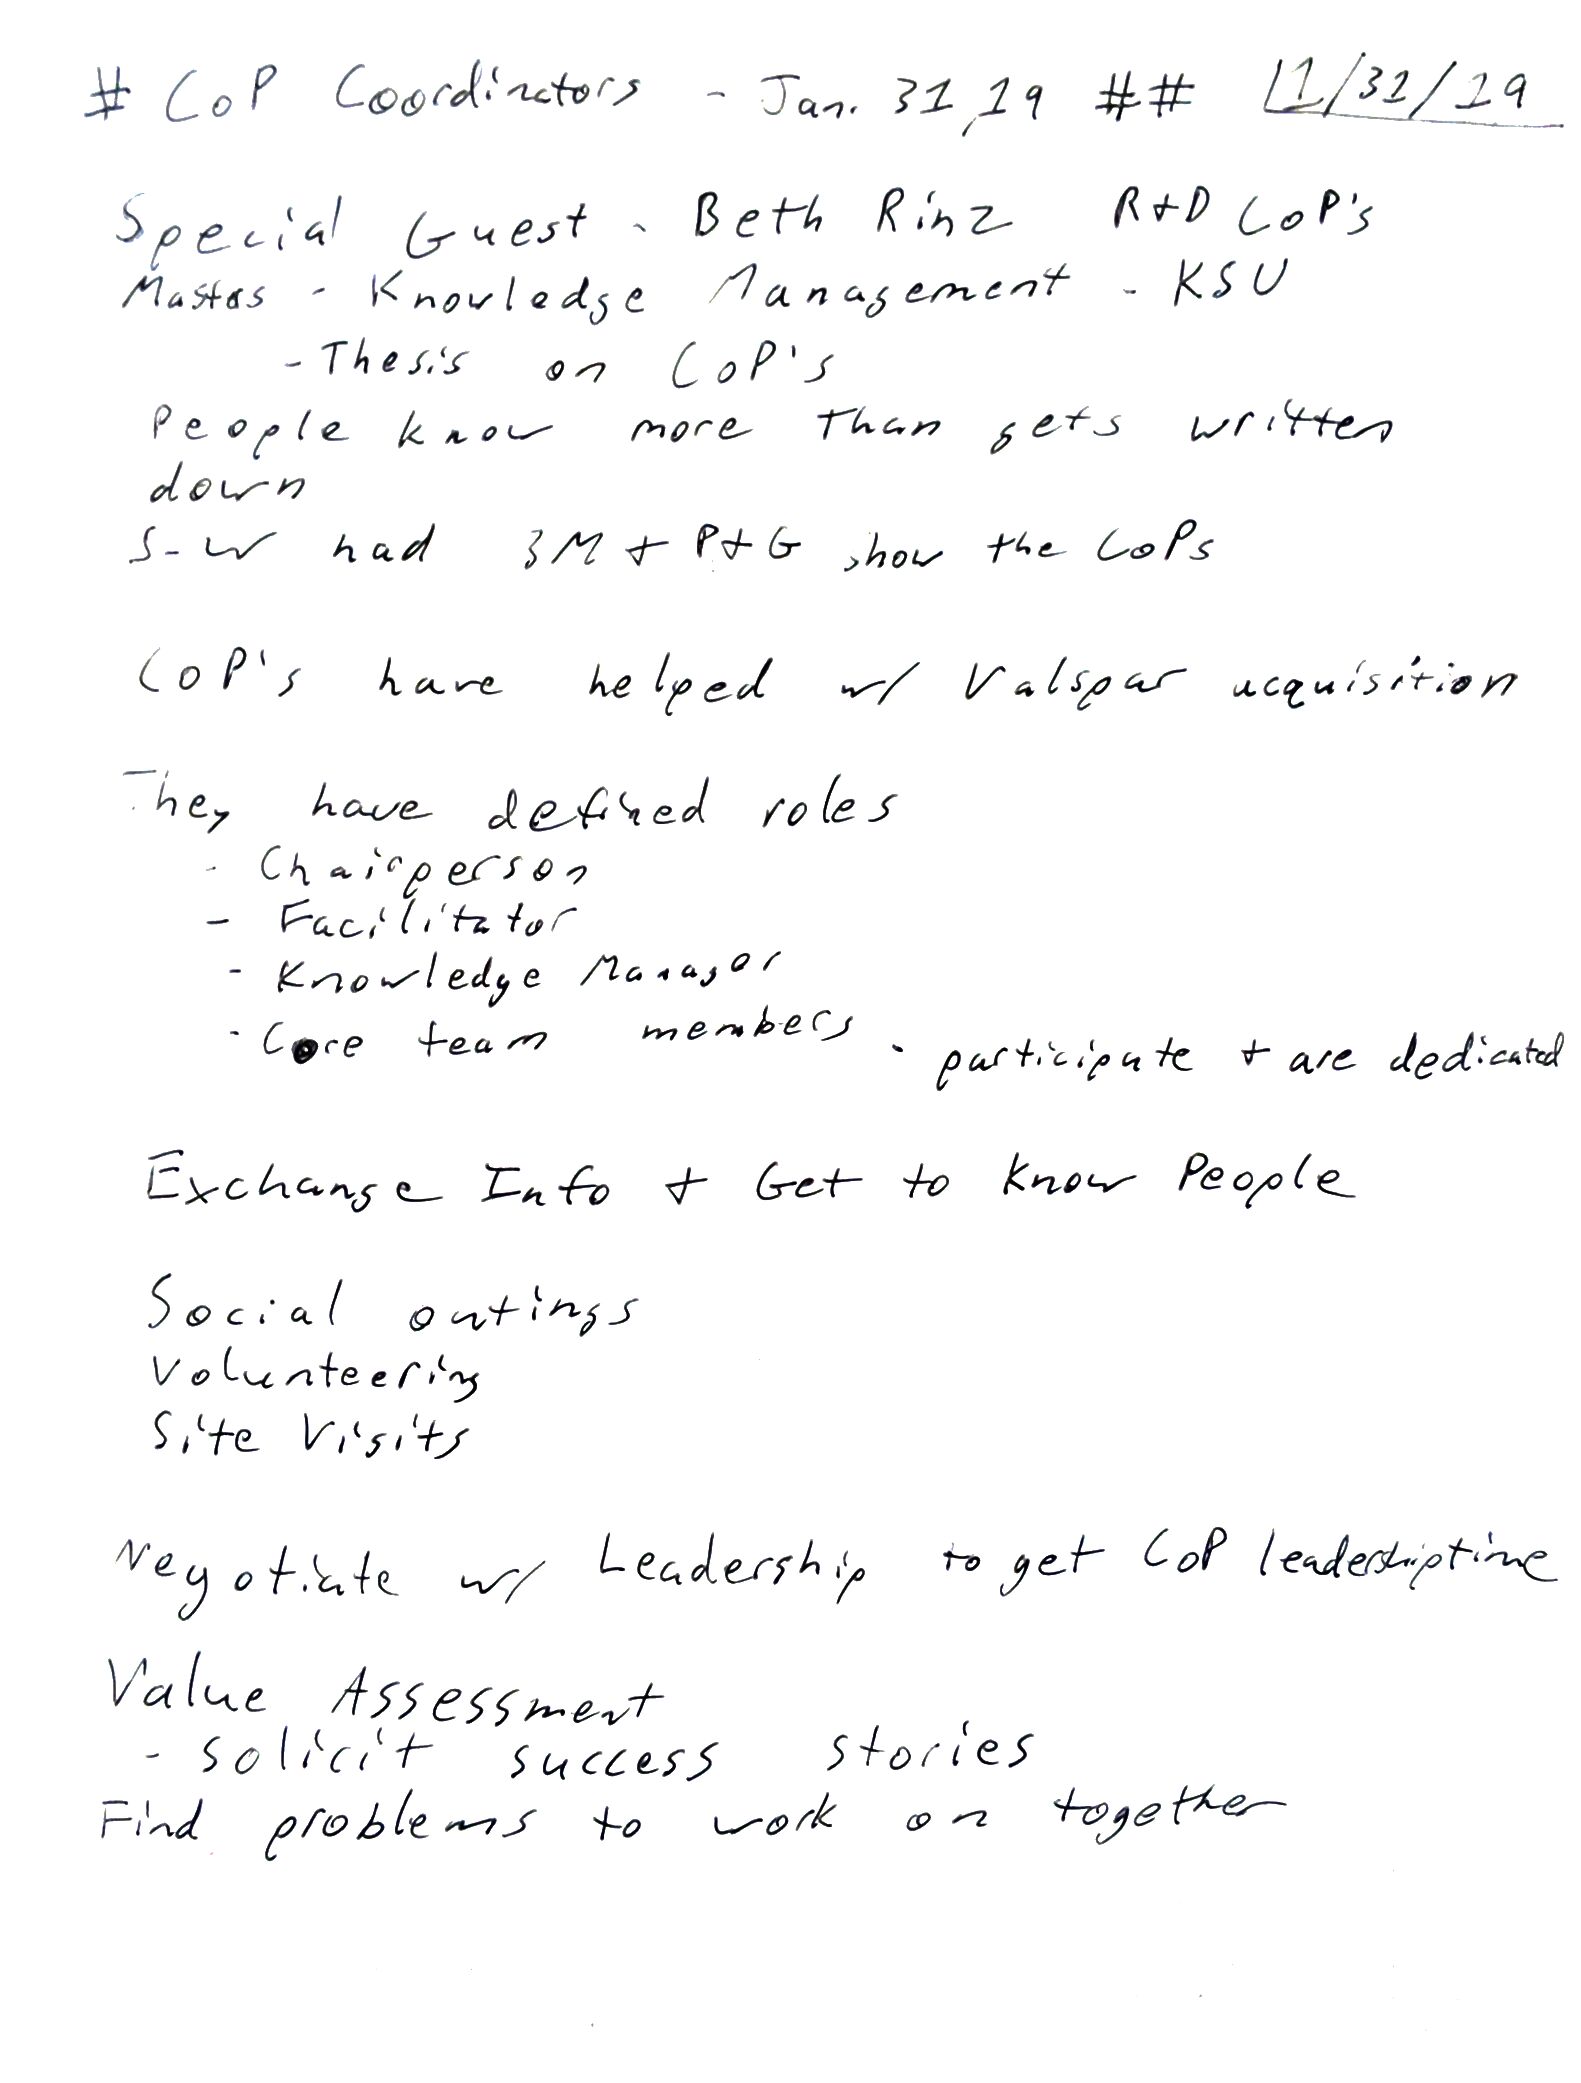 # CoP Coordinators - Jan. 31, 19 ## 1/31/19
Special Guest - Beth Rinz R+D CoP's
Masters - Knowledge Management - KSU
- Thesis on CoP's
People know more than gets written
down
S-W had 3M + P+G show the CoPs
CoP's have helped w/ Valspar acquisition
They have defined roles
- Chairperson
- Facilitator
- Knowledge Manager
- Core team members - participate + are dedicated
Exchange Info + Get to Know People
Social outings
Volunteering
Site Visits
Negotiate w/ Leadership to get CoP leadership time
Value Assessment
- solicit success stories
Find problems to work on together